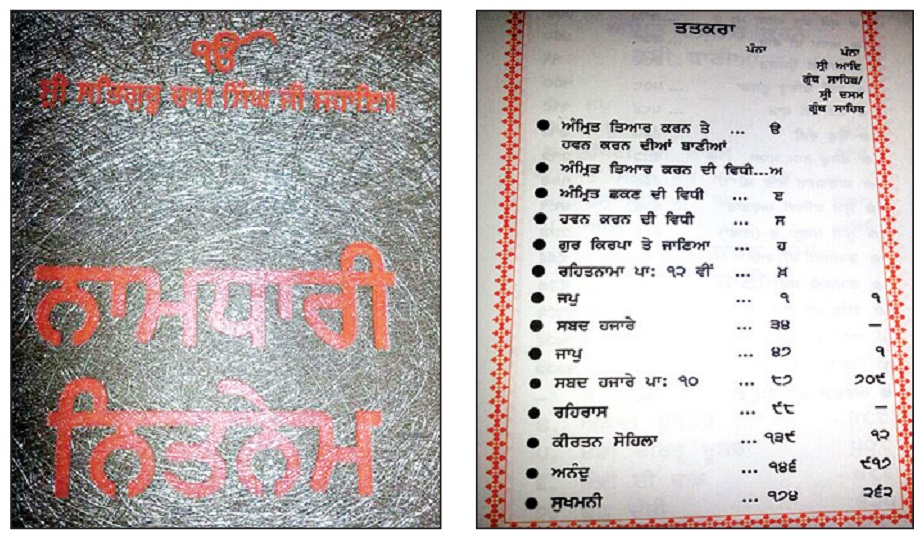 ੴ
ਸ੍ਰੀ ਸਤਿਗੁਰੂ ਰਾਮ ਸਿੰਘ ਜੀ ਸਹਾਇ॥
ਨਾਮਧਾਰੀ
ਨਿਤਨੇਮ
ਤਤਕਰਾ
ਪੰਨਾ ਪੰਨਾ
ਸ੍ਰੀ ਆਦਿ
ਗ੍ਰੰਥ ਸਾਹਿਬ/
ਸ੍ਰੀ ਦਸਮ
ਗ੍ਰੰਥ ਸਾਹਿਬ
● ਅੰਮ੍ਰਿਤ ਤਿਆਰ ਕਰਨ ਤੇ ... ੳ
ਹਵਨ ਕਰਨ ਦੀਆਂ ਬਾਣੀਆਂ
● ਅੰਮ੍ਰਿਤ ਤਿਆਰ ਕਰਨ ਦੀ ਵਿਧੀ...ਅ
● ਅੰਮ੍ਰਿਤ ਛਕਣ ਦੀ ਵਿਧੀ ... ੲ
● ਹਵਨ ਕਰਨ ਦੀ ਵਿਧੀ ... ਸ
● ਗੁਰ ਕਿਰਪਾ ਤੇ ਜਾਣਿਆ ... ਹ
● ਰਹਿਤਨਾਮਾ ਪਾ: ੧੨ ਵੀਂ ... ਖ਼
● ਜਪੁ ... ੧ ੧
● ਸਬਦ ਹਜਾਰੇ ... ੩੪ —
● ਜਾਪੁ ... ੪੭ ੧
● ਸਬਦ ਹਜਾਰੇ ਪਾ: ੧੦ ... ੮੭ ੭੦੯
● ਰਹਿਰਾਸ ... ੯੮ —
● ਕੀਰਤਨ ਸੋਹਿਲਾ ... ੧੩੯ ੧੨
● ਅਨੰਦੁ ... ੧੪੬ ੯੧੭
● ਸੁਖਮਨੀ ... ੧੭੪ ੨੬੨